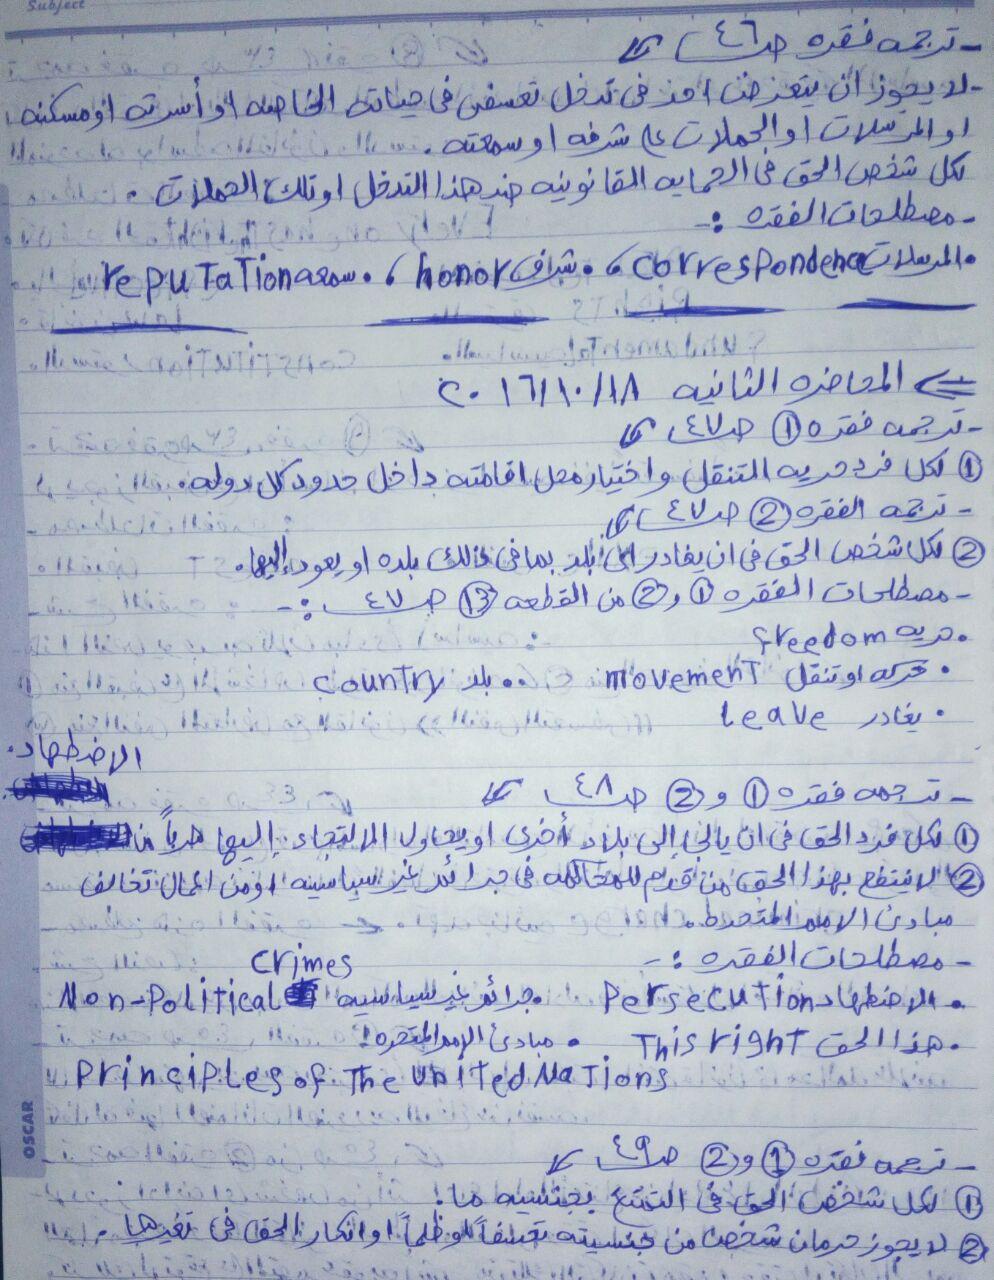 Subject
- ترجمه فقره صـ ٤٦
- لا يجوز ان يتعرض احد في تدخل تعسفي في حياته الخاصه او أسرته او مسكنه
او المرسلات او الحملات على شرفه او سمعته .
لكل شخص الحق في الحمايه القانونيه ضد هذا التدخل او تلك الحملات .
- مصطلحات الفقره :-
• المرسلات correspondence ، • شراف honor ، • سمعه reputation
المحاضره الثانيه ٢٠١٦/١٠/١٨
- ترجمه فقره ① صـ ٤٧
① لكل فرد حريه التنقل و اختيار محل اقامته داخل حدود كل دوله .
- ترجمه الفقره ② صـ ٤٧
② لكل شخص الحق في ان يغادر اي بلد بما في ذالك بلده او يعود إليها .
- مصطلحات الفقره ① و ② من القطعه ⑬ صـ ٤٧ :-
• حريه freedom
• حركه او تنقل movement • بلد country
• يغادر leave
الاضطهاد .
- ترجمه فقره ① و ② صـ ٤٨
① لكل فرد الحق في ان يلجئ إلى بلاد أخرى او يحاول الالتجاء إليها هرباً من
② لا ينتفع بهذا الحق من قدم للمحاكمه في جرائم غير سياسيه او من اعمال تخالف
مبادئ الامم المتحده .
- مصطلحات الفقره :- crimes
• الاضطهاد Persecution • جرائم غير سياسيه Non-Political
• هذا الحق This right • مبادئ الامم المتحده
Principles of The United Nations
- ترجمه فقره ① و ② صـ ٤٩
① لكل شخص الحق في التمتع بجنسيه ما .
② لا يجوز حرمان شخص من جنسيته تعسفاً او ظلماً او انكار الحق في تغيرها .
OSCAR